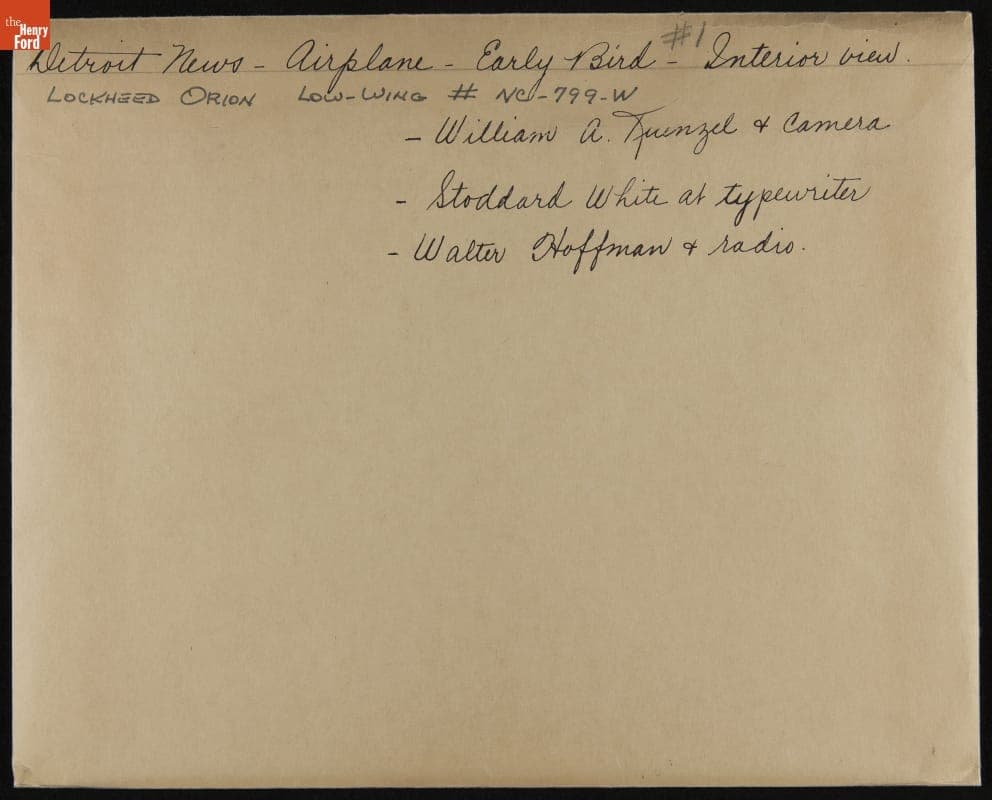 the
Henry
Ford
#1
Detroit News - Airplane - Early Bird - Interior view.
LOCKHEED ORION LOW-WING # NC-799-W
- William A. Kuenzel & Camera
- Stoddard White at typewriter
- Walter Hoffman & radio.